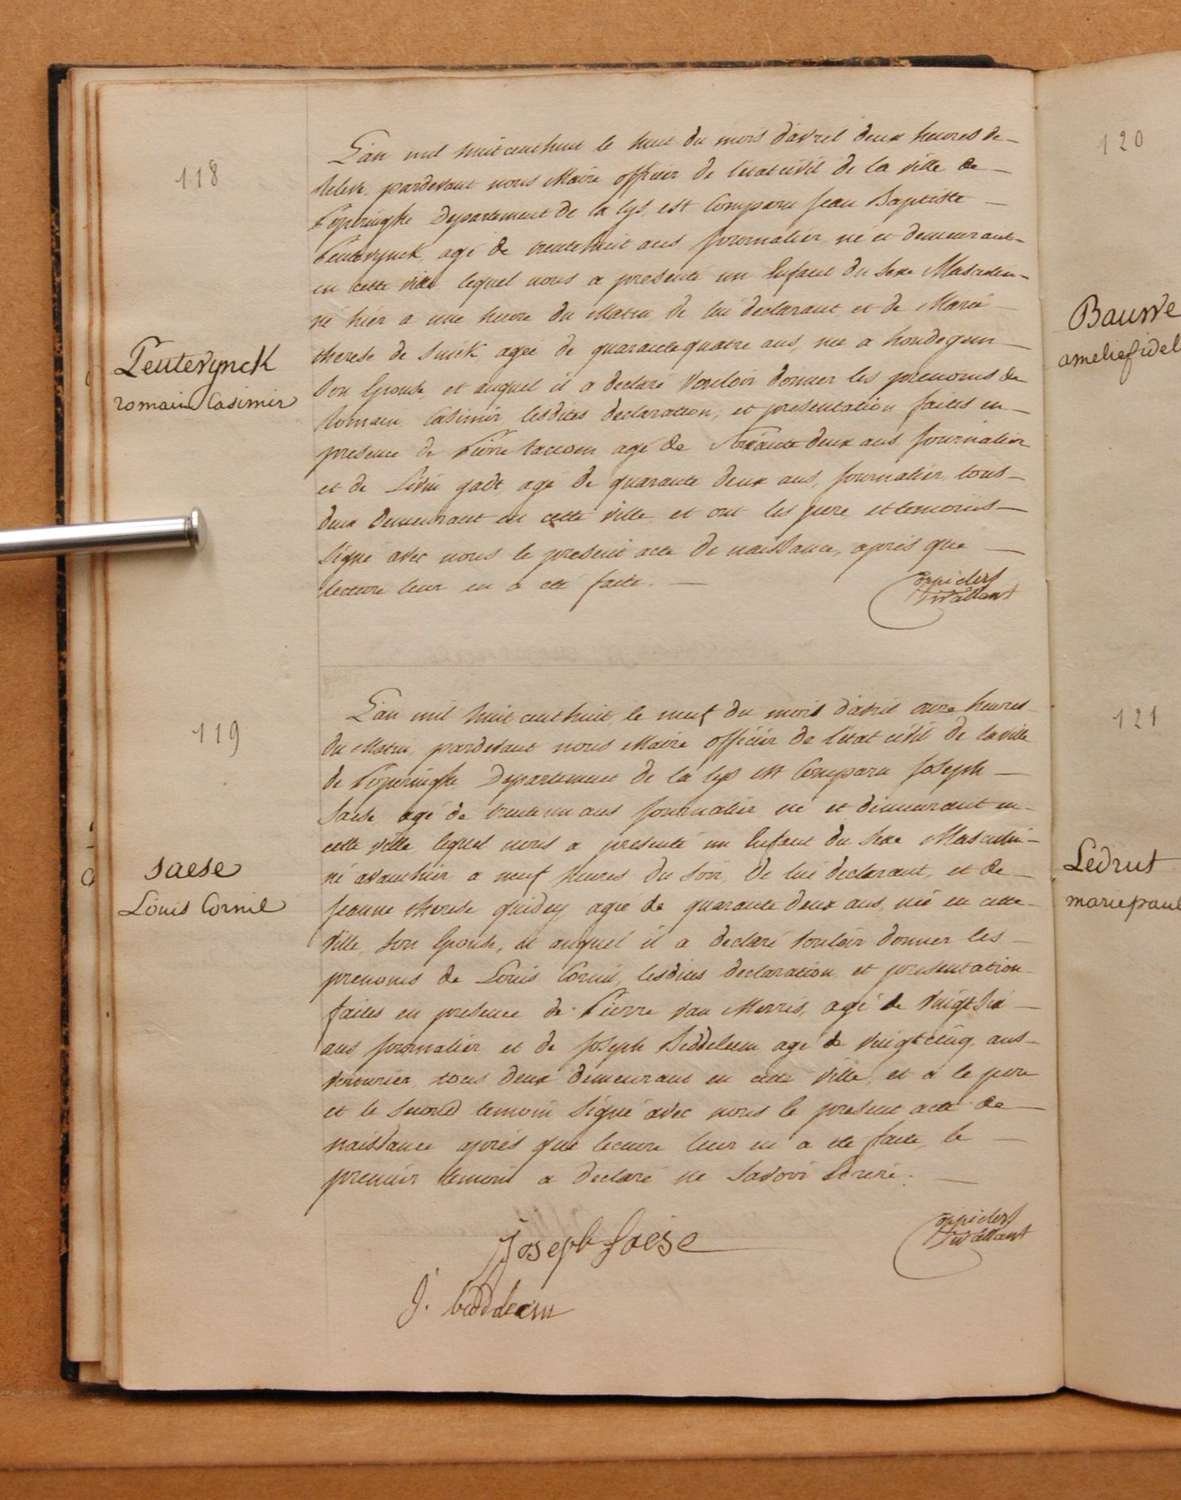 118
Peuterÿnck
romain Casimir
L'an mil huit cent huit le huit du mois d'avril deux heures de
relevé, pardevant nous Maire officier de l'état civil de la ville de
Poperinghe Departement de la Lys, est Comparu Jean Baptiste
Peuterynck, agé de trente huit ans journalier, né et demeurant
en cette ville lequel nous a presenté un Enfant du Sexe Masculin
né hier a une heure du Matin de lui declarant et de Marie
therese de agée de quarante quatre ans, née a hondegem
Son Epouse et auquel il a declaré Vouloir donner les prenoms de
Romain Casimir lesdites declaration, et presentation faites en
presence de Pierre agé de deux ans journalier
et de agé de quarante deux ans, journalier, tous
deux demeurant en cette ville, et ont les pere et temoins
Signé avec nous le present acte de naissance, après que
lecture leur en a eté faite.
119
saese
Louis Cornil
L'an mil huit cent huit, le neuf du mois d'avril onze heures
du Matin, pardevant nous Maire officier de l'état civil de la ville
de Poperinghe Departement de la Lys est Comparu Joseph
Saese agé de trente un ans journalier né et demeurant en
cette ville lequel nous a presenté un Enfant du Sexe Masculin
né avant hier a neuf heures du Soir, de lui declarant, et de
Jeanne therese agée de quarante deux ans, née en cette
ville, Son Epouse, et auquel il a declaré Vouloir donner les
prenoms de Louis Cornil, lesdites declaration et presentation
faites en presence de Pierre Van Merris, agé de Vingt Six
ans journalier et de Joseph Beddeleem agé de Vingt cinq ans
tous deux demeurant en cette ville, et a le pere
et le Second temoin Signé avec nous le present acte de
naissance après que lecture leur en a eté faite, le
premier temoin a declaré ne Savoir Ecrire.
Joseph Saese
J. beddeleem
120
Bauwe
amelie fidel
121
Ledrut
marie paul